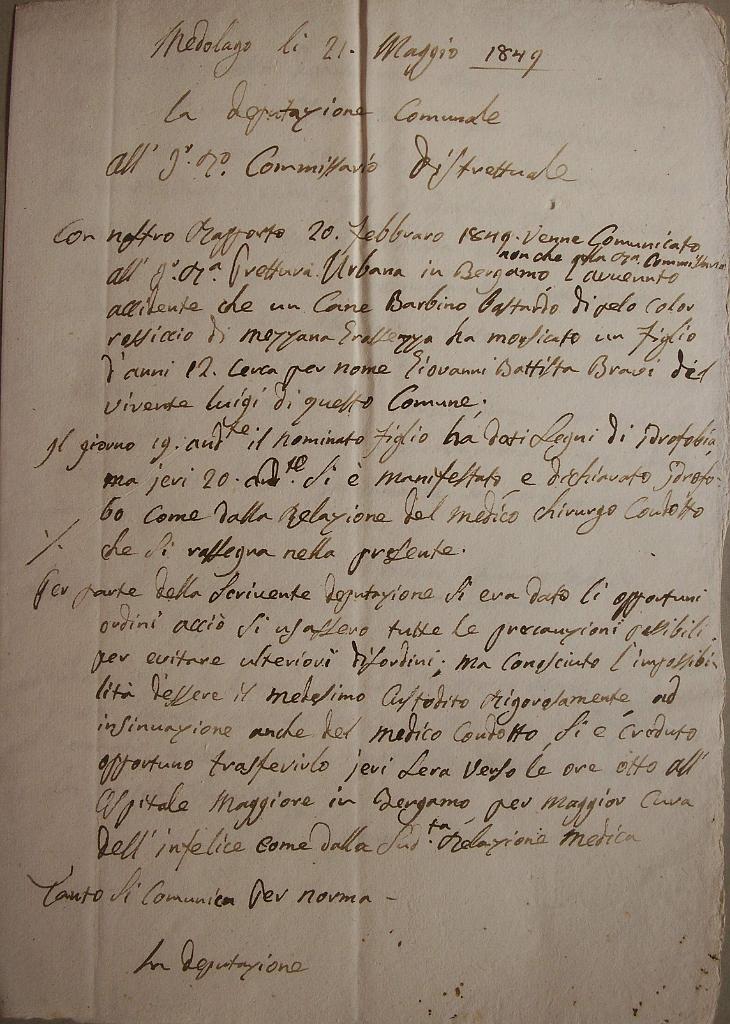 Medolago li 21. Maggio 1849
La deputazione Comunale
all' I. R. Commissario Distrettuale
Con nostro Rapporto 20. febbraro 1849. Venne Comunicato
non che Commissaria
all' I. R. Prettura Urbana in Bergamo l'avvenuto
accidente che un Cane Barbino Bastardo di pelo color
rossiccio di mezzana Grassezza ha morsicato un figlio
d'anni 12. Cerca per nome Giovanni Battista Bravi del
vivente luigi di questo Comune.
Il giorno 19. andte il nominato figlio ha dati Segni di idrofobia,
ma jeri 20. andte Si è manifestato e dichiarato idrofo-
bo come dalla Relazione del medico chirurgo Condotto
./. che Si rassegna nella presente.
Per parte della Scrivente deputazione Si era dato li opportuni
ordini acciò Si usassero tutte le precauzioni possibili
per evitare ulteriori disordini; ma conosciuto l'impossibi-
lità d'essere il medesimo Custodito Rigorosamente, ad
insinuazione anche del medico Condotto, Si è Creduto
opportuno trasferirlo jeri Sera verso le ore otto all'
Ospitale Maggiore in Bergamo per maggior Cura
dell'infelice come dalla Sudta Relazione medica
Tanto Si Comunica per norma -
La deputazione